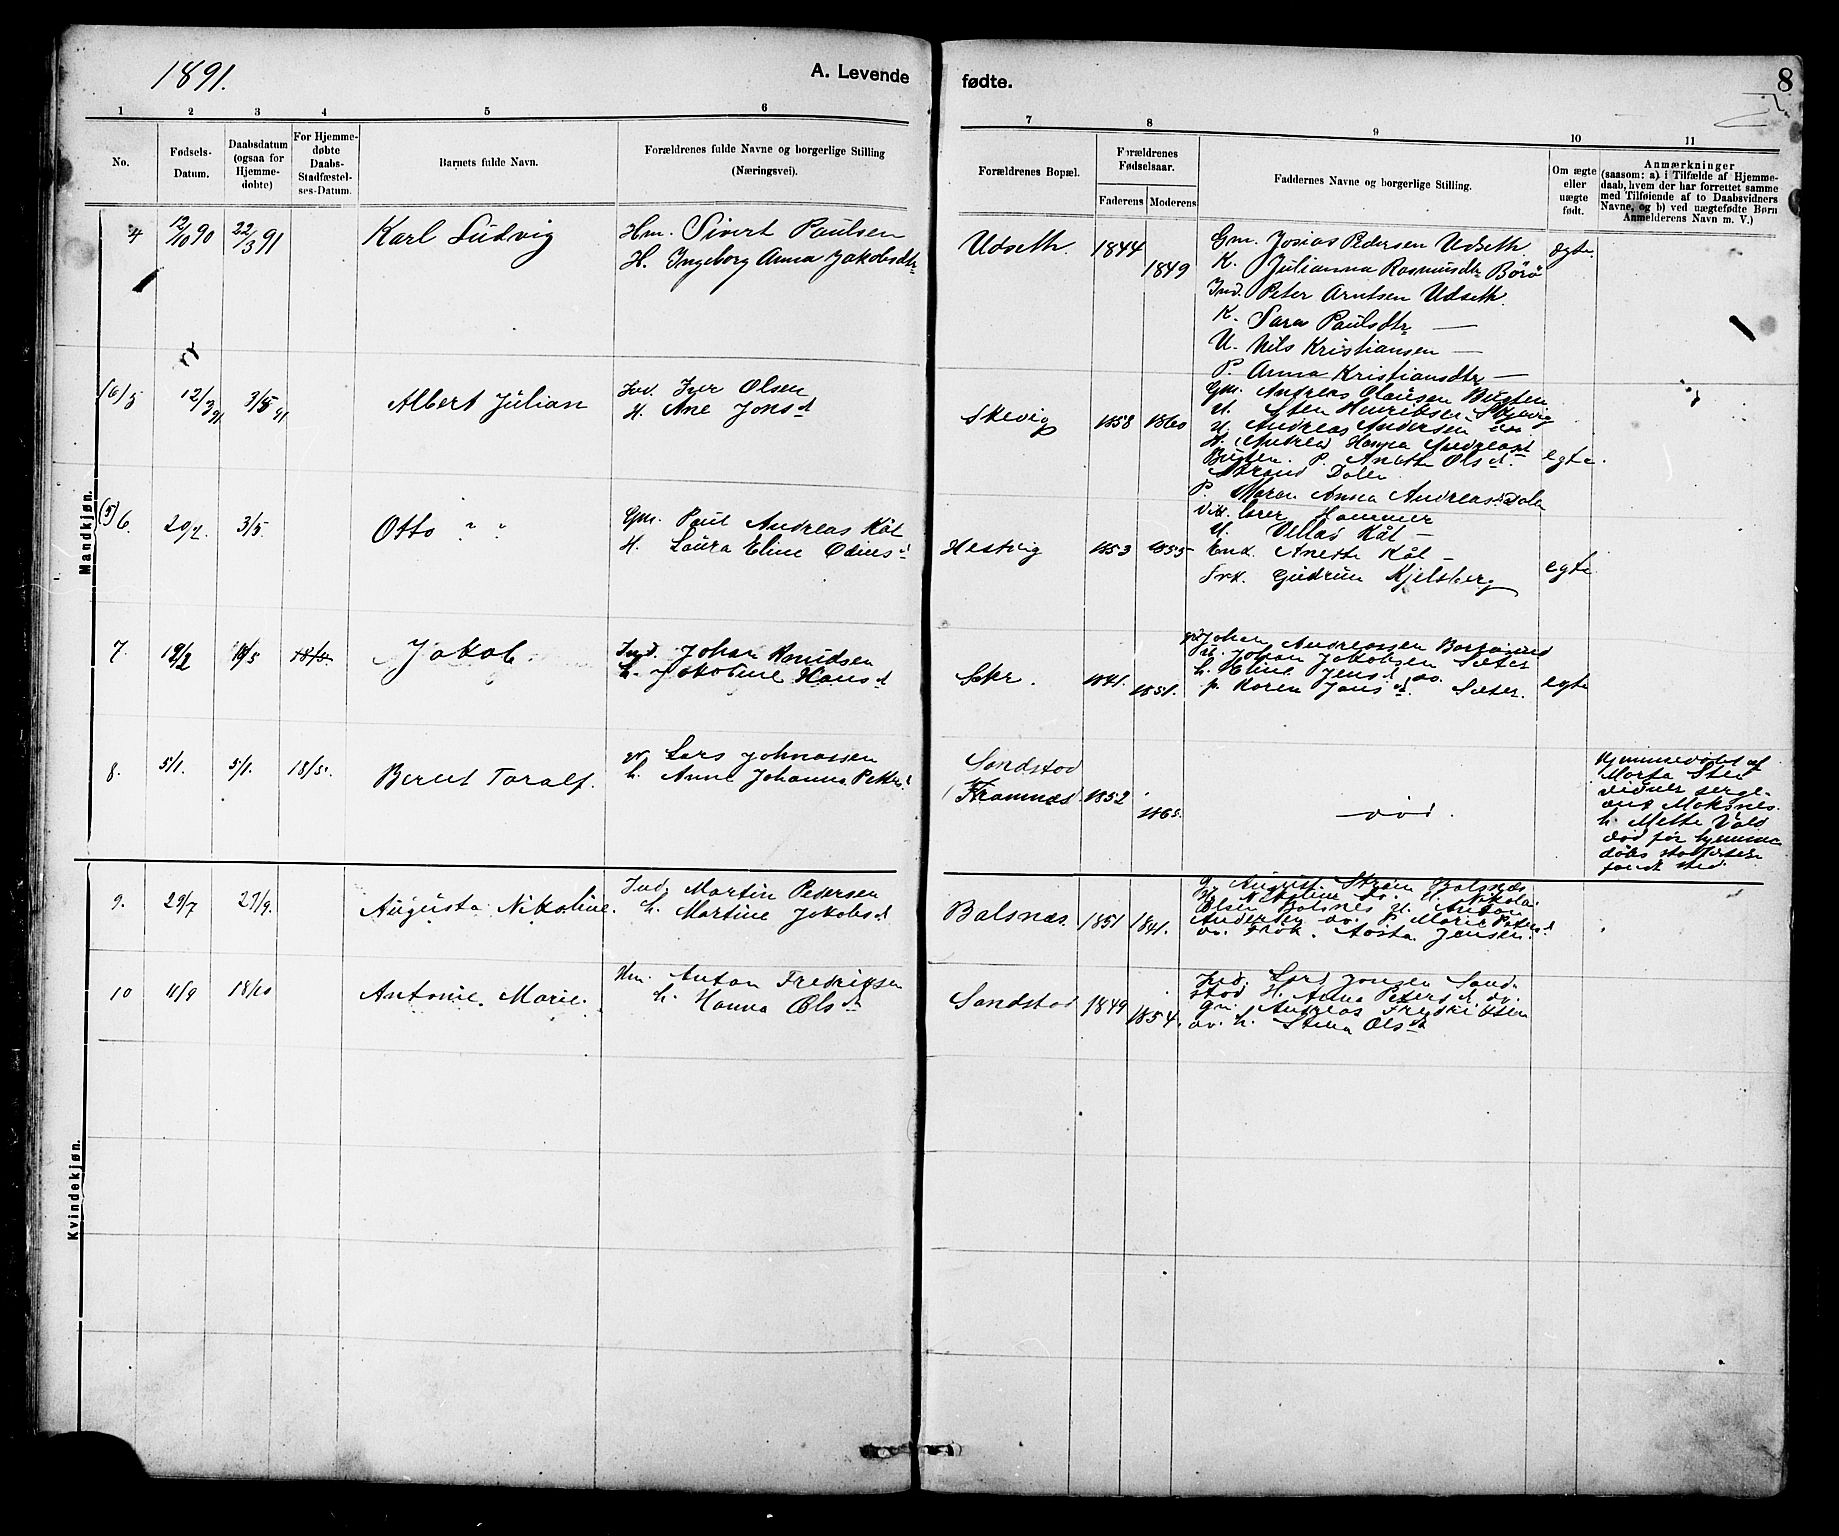 1891.
A. Levende fødte.
8
1 2 3 4 5 6 7 8 9 10 11
No.
Fødsels-
Datum.
Daabsdatum
(ogsaa for
Hjemme-
døbte)
For Hjemme-
døbte
Daabs-
Stadfæstel-
ses-Datum.
Barnets fulde Navn.
Forældrenes fulde Navne og borgerlige Stilling
(Næringsvei).
Forældrenes Bopæl.
Forældrenes
Fødselsaar.
Faderens Moderens
Faddernes Navne og borgerlige Stilling.
Om ægte
eller
uægte
født.
Anmærkninger
(saasom: a) i Tilfælde af Hjemme-
daab, hvem der har forrettet samme
med Tilføiende af to Daabsvidners
Navne, og b) ved uægtefødte Børn
Anmelderens Navn m. V.)
Mandkjøn.
4 12/10 90 22/3 91 Karl Ludvig
Hm. Sivert Paulsen
H. Ingeborg Anna Jakobsdtr
Udseth 1844 1849
Gm. Josias Pedersen Udseth
K. Julianna Rasmusdtr Börö
Ind. Peter Arntsen Udseth
K. Sara Paulsdtr —
U. Nils Kristiansen —
P. Anna Kristiansdtr —
ægte
(6/5 12/3 91 3/5 91 Albert Julian
Ind. Iver Olsen
H. Ane Jonsd
Skevig 1858 1860
Gm. Andreas Olausen Bugten
U. Sten Henriksen Skjevig
U. Andreas Andersen
H. Andrea Hanna Andreasd
Bugten. P. Anette Olsd.
Strand Dolen
egte.
(5) 6. 20/2. 3/5. Otto " "
Gm. Paul Andreas Kåt
H. Laura Eline Odinsd
Hestvig 1853 1855
P. Maren Anna Andreasd Dolen
Vik. lærer Hammer
U. Villad Kåt —
Enk. Anette Kåt —
Frk. Gudrun Kjelsberg
egte
7. 19/2 18/5 18/5 Jakob.
Ind. Johan Knudsen
h. Jakobine Hansd
Seter. 1841. 1851.
Johan Andreassen
Johan Jakobsen Seter
h. Eline Jensd do.
p. Karen Jansd. Seter.
egte
8. 5/1. 5/1. 18/5. Bernt Toralf.
gr Lars Johnassen
h. Anne Johanna Petersd
Sandstad
(Framnæs) 1852 1865.
— død.
Hjemmedøbt af
Marta Sten
vidner serge-
ant Moksnes.
h. Mette Vold
død før hjemme
døbs stadfestelse
fandt sted
Kvindekjøn.
9. 29/7 27/9. Augusta Nikoline.
Ind. Martin Petersen
h. Martine Jakobsd
Balsnæs. 1851 1841.
g. August Strøm Balsnæs
h. Nikoline do. U. Nikolai
Olsen Balsnes U. Anton
Andersen do. P. Marie Petersd
do. Frøk. Aosta Jensen.
10 11/9 18/10 Antonie. Marie.
Hm. Anton Fredriksen
h. Hanna Olsdtr
Sandstad 1849 1854.
Ind. Lars Jonsen Sand-
stad H. Anna Petersd do.
gm. Andreas Fredriksen
do. h. Stina Olsdtr